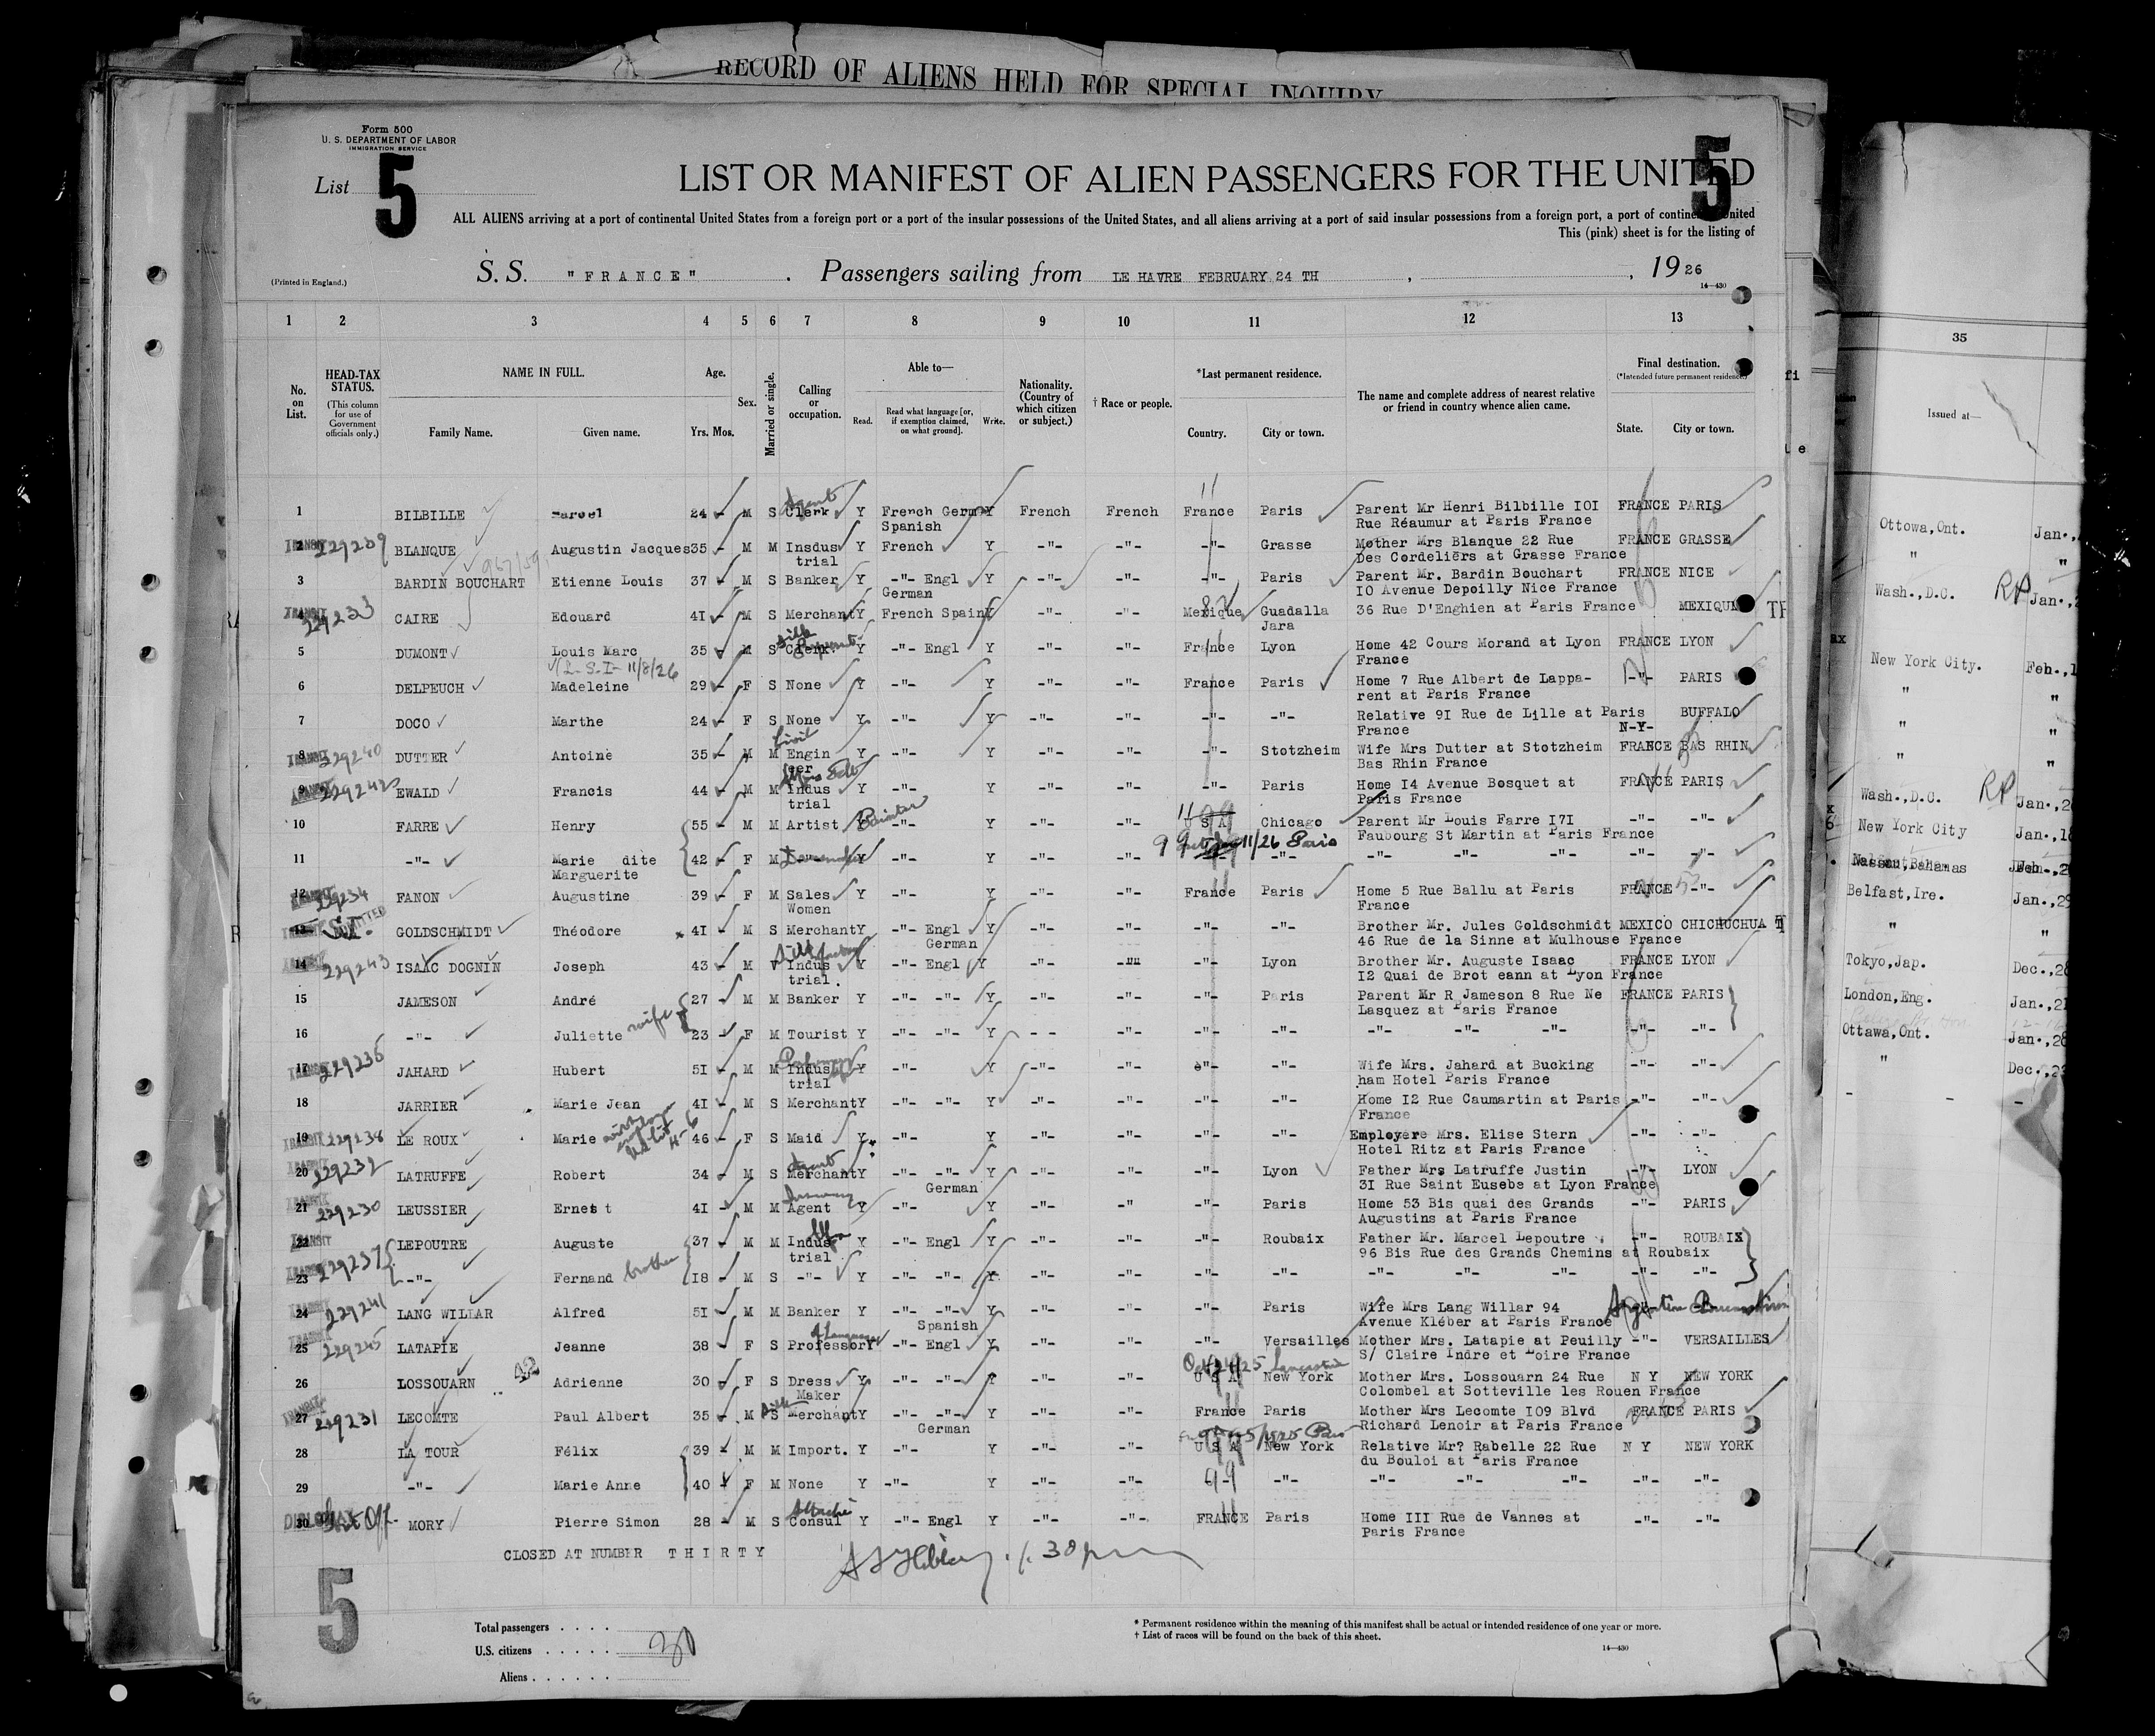 RECORD OF ALIENS HELD FOR SPECIAL INQUIRY
Form 500
U. S. DEPARTMENT OF LABOR
IMMIGRATION SERVICE
List 5
5
LIST OR MANIFEST OF ALIEN PASSENGERS FOR THE UNITED
ALL ALIENS arriving at a port of continental United States from a foreign port or a port of the insular possessions of the United States, and all aliens arriving at a port of said insular possessions from a foreign port, a port of continental United
This (pink) sheet is for the listing of
(Printed in England.)
S. S. "FRANCE". Passengers sailing from LE HAVRE FEBRUARY 24 TH, 1926
14—430
1 2 3 4 5 6 7 8 9 10 11 12 13
No. on List.
HEAD-TAX STATUS. (This column for use of Government officials only.)
NAME IN FULL. Family Name. Given name.
Age. Yrs. Mos.
Sex.
Married or single.
Calling or occupation.
Able to— Read. Read what language [or, if exemption claimed, on what ground]. Write.
Nationality. (Country of which citizen or subject.)
† Race or people.
*Last permanent residence. Country. City or town.
The name and complete address of nearest relative or friend in country whence alien came.
Final destination. (*Intended future permanent residence.) State. City or town.
1 BILBILLE Marcel 24 - M S Clerk Agent Y French Germ Y French French France Paris Parent Mr Henri Bilbille I0I FRANCE PARIS
Spanish Rue Réaumur at Paris France
2 TRANSIT 229239 BLANQUE Augustin Jacques 35 - M M Insdus Y French Y -"- -"- -"- Grasse Mother Mrs Blanque 22 Rue FRANCE GRASSE
trial Des Cordeliers at Grasse France
3 BARDIN BOUCHART Etienne Louis 37 - M S Banker Y -"- Engl Y -"- -"- -"- Paris Parent Mr. Bardin Bouchart FRANCE NICE
German I0 Avenue Depoilly Nice France
4 TRANSIT 229233 CAIRE Edouard 4I - M S Merchant Y French Spain Y -"- -"- Mexique Guadalla 36 Rue D'Enghien at Paris France MEXIQUE
Jara
5 DUMONT Louis Marc 35 - M S Clerk. Y -"- Engl Y -"- -"- France Lyon Home 42 Cours Morand at Lyon FRANCE LYON
France
6 DELPEUCH Madeleine 29 - F S None Y -"- Y -"- -"- France Paris Home 7 Rue Albert de Lappa- -"- PARIS
rent at Paris France
7 DOCO Marthe 24 - F S None Y -"- Y -"- -"- -"- -"- Relative 9I Rue de Lille at Paris BUFFALO
France N-Y-
8 TRANSIT 229240 DUTTER Antoine 35 - M M Civil Engin Y -"- Y -"- -"- -"- Stotzheim Wife Mrs Dutter at Stotzheim FRANCE BAS RHIN
eer Bas Rhin France
9 TRANSIT 229242 EWALD Francis 44 - M M Indus Y -"- Y -"- -"- -"- Paris Home I4 Avenue Bosquet at FRANCE PARIS
trial Paris France
10 FARRE Henry 55 - M M Artist Painter Y -"- Y -"- -"- U S A Chicago Parent Mr Louis Farre I7I -"- -"-
Faubourg St Martin at Paris France
11 -"- Marie dite 42 - F M Y -"- Y -"- -"- -"- -"- -"- -"- -"- -"- -"-
Marguerite
12 TRANSIT 229234 FANON Augustine 39 - F M Sales Y -"- Y -"- -"- France Paris Home 5 Rue Ballu at Paris FRANCE -"-
Women France
13 GOLDSCHMIDT Théodore 4I - M S Merchant Y -"- Engl Y -"- -"- -"- -"- Brother Mr. Jules Goldschmidt MEXICO CHICHUCHUA
German 46 Rue de la Sinne at Mulhouse France
14 TRANSIT 229243 ISAAC DOGNIN Joseph 43 - M V Indus Y -"- Engl Y -"- -"- -"- Lyon Brother Mr. Auguste Isaac FRANCE LYON
trial. I2 Quai de Brot eann at Lyon France
15 JAMESON André 27 - M M Banker Y -"- -"- Y -"- -"- -"- Paris Parent Mr R Jameson 8 Rue Ne FRANCE PARIS
Lasquez at Paris France
16 -"- Juliette wife 23 - F M Tourist Y -"- -"- Y - - -"- -"- -"- -"- -"- -"- -"- -"-
17 TRANSIT 229236 JAHARD Hubert 5I - M M Indus Y -"- Y -"- -"- -"- -"- Wife Mrs. Jahard at Bucking -"- -"-
trial ham Hotel Paris France
18 JARRIER Marie Jean 4I - M S Merchant Y -"- -"- Y -"- -"- -"- -"- Home I2 Rue Caumartin at Paris -"- -"-
France
19 TRANSIT 229238 LE ROUX Marie 46 - F S Maid Y -"- Y -"- -"- -"- -"- Employere Mrs. Elise Stern -"- -"-
Hotel Ritz at Paris France
20 TRANSIT 229232 LATRUFFE Robert 34 - M S Merchant Y -"- -"- Y -"- -"- -"- Lyon Father Mrs Latruffe Justin -"- LYON
German 3I Rue Saint Eusebe at Lyon France
21 TRANSIT 229230 LEUSSIER Ernest 4I - M M Agent Y -"- Y -"- -" -"- Paris Home 53 Bis quai des Grands -"- PARIS
Augustins at Paris France
22 TRANSIT LEPOUTRE Auguste 37 - M M Indus Y -"- Engl Y -"- -"- -"- Roubaix Father Mr. Marcel Lepoutre -"- ROUBAIX
trial 96 Bis Rue des Grands Chemins at Roubaix
23 TRANSIT 229237 -"- Fernand brother I8 - M S -"- Y -"- -"- Y -"- -"- -"- -"- -"- -"- -"- -"- -"-
24 TRANSIT 229241 LANG WILLAR Alfred 5I - M M Banker Y -"- -"- Y -"- -"- -"- Paris Wife Mrs Lang Willar 94
Spanish Avenue Kléber at Paris France
25 TRANSIT 229245 LATAPIE Jeanne 38 - F S Professor of Languages Y -"- Engl Y -"- -"- -"- Versailles Mother Mrs. Latapie at Peuilly -"- VERSAILLES
S/ Claire Indre et Loire France
26 LOSSOUARN Adrienne 30 - F S Dress Y -"- -"- Y -"- -"- U S A New York Mother Mrs. Lossouarn 24 Rue N Y NEW YORK
Maker Colombel at Sotteville les Rouen France
27 TRANSIT 229231 LECOMTE Paul Albert 35 - M S Silk Merchant Y -"- -"- Y -"- -"- France Paris Mother Mrs Lecomte I09 Blvd FRANCE PARIS
German Richard Lenoir at Paris France
28 LA TOUR Félix 39 - M M Import. Y -"- Y -"- -"- U S A New York Relative Mr? Rabelle 22 Rue N Y NEW YORK
du Bouloi at Paris France
29 -"- Marie Anne 40 - F M None Y -"- Y -"- -"- 99 -"- -"- -"- -"- -"- -"-
30 MORY Pierre Simon 28 - M S Attaché Consul Y -"- Engl Y -"- -"- FRANCE Paris Home III Rue de Vannes at -"- -"-
Paris France
CLOSED AT NUMBER T H I R T Y
5
Total passengers . . . .
U.S. citizens . . . . . 30
Aliens . . . . . .
* Permanent residence within the meaning of this manifest shall be actual or intended residence of one year or more.
† List of races will be found on the back of this sheet.
14—430
35
Issued at—
Ottowa, Ont. Jan.,
" "
Wash., D.C. RP Jan.,
New York City. Feb.,
" "
" "
" "
Wash., D.C. RP Jan.,
New York City Jan.,
Nassau, Bahamas
Belfast, Ire. Jan.,
" "
Tokyo, Jap. Dec.,
London, Eng. Jan.,
Ottawa, Ont. Jan.,
" Dec.,